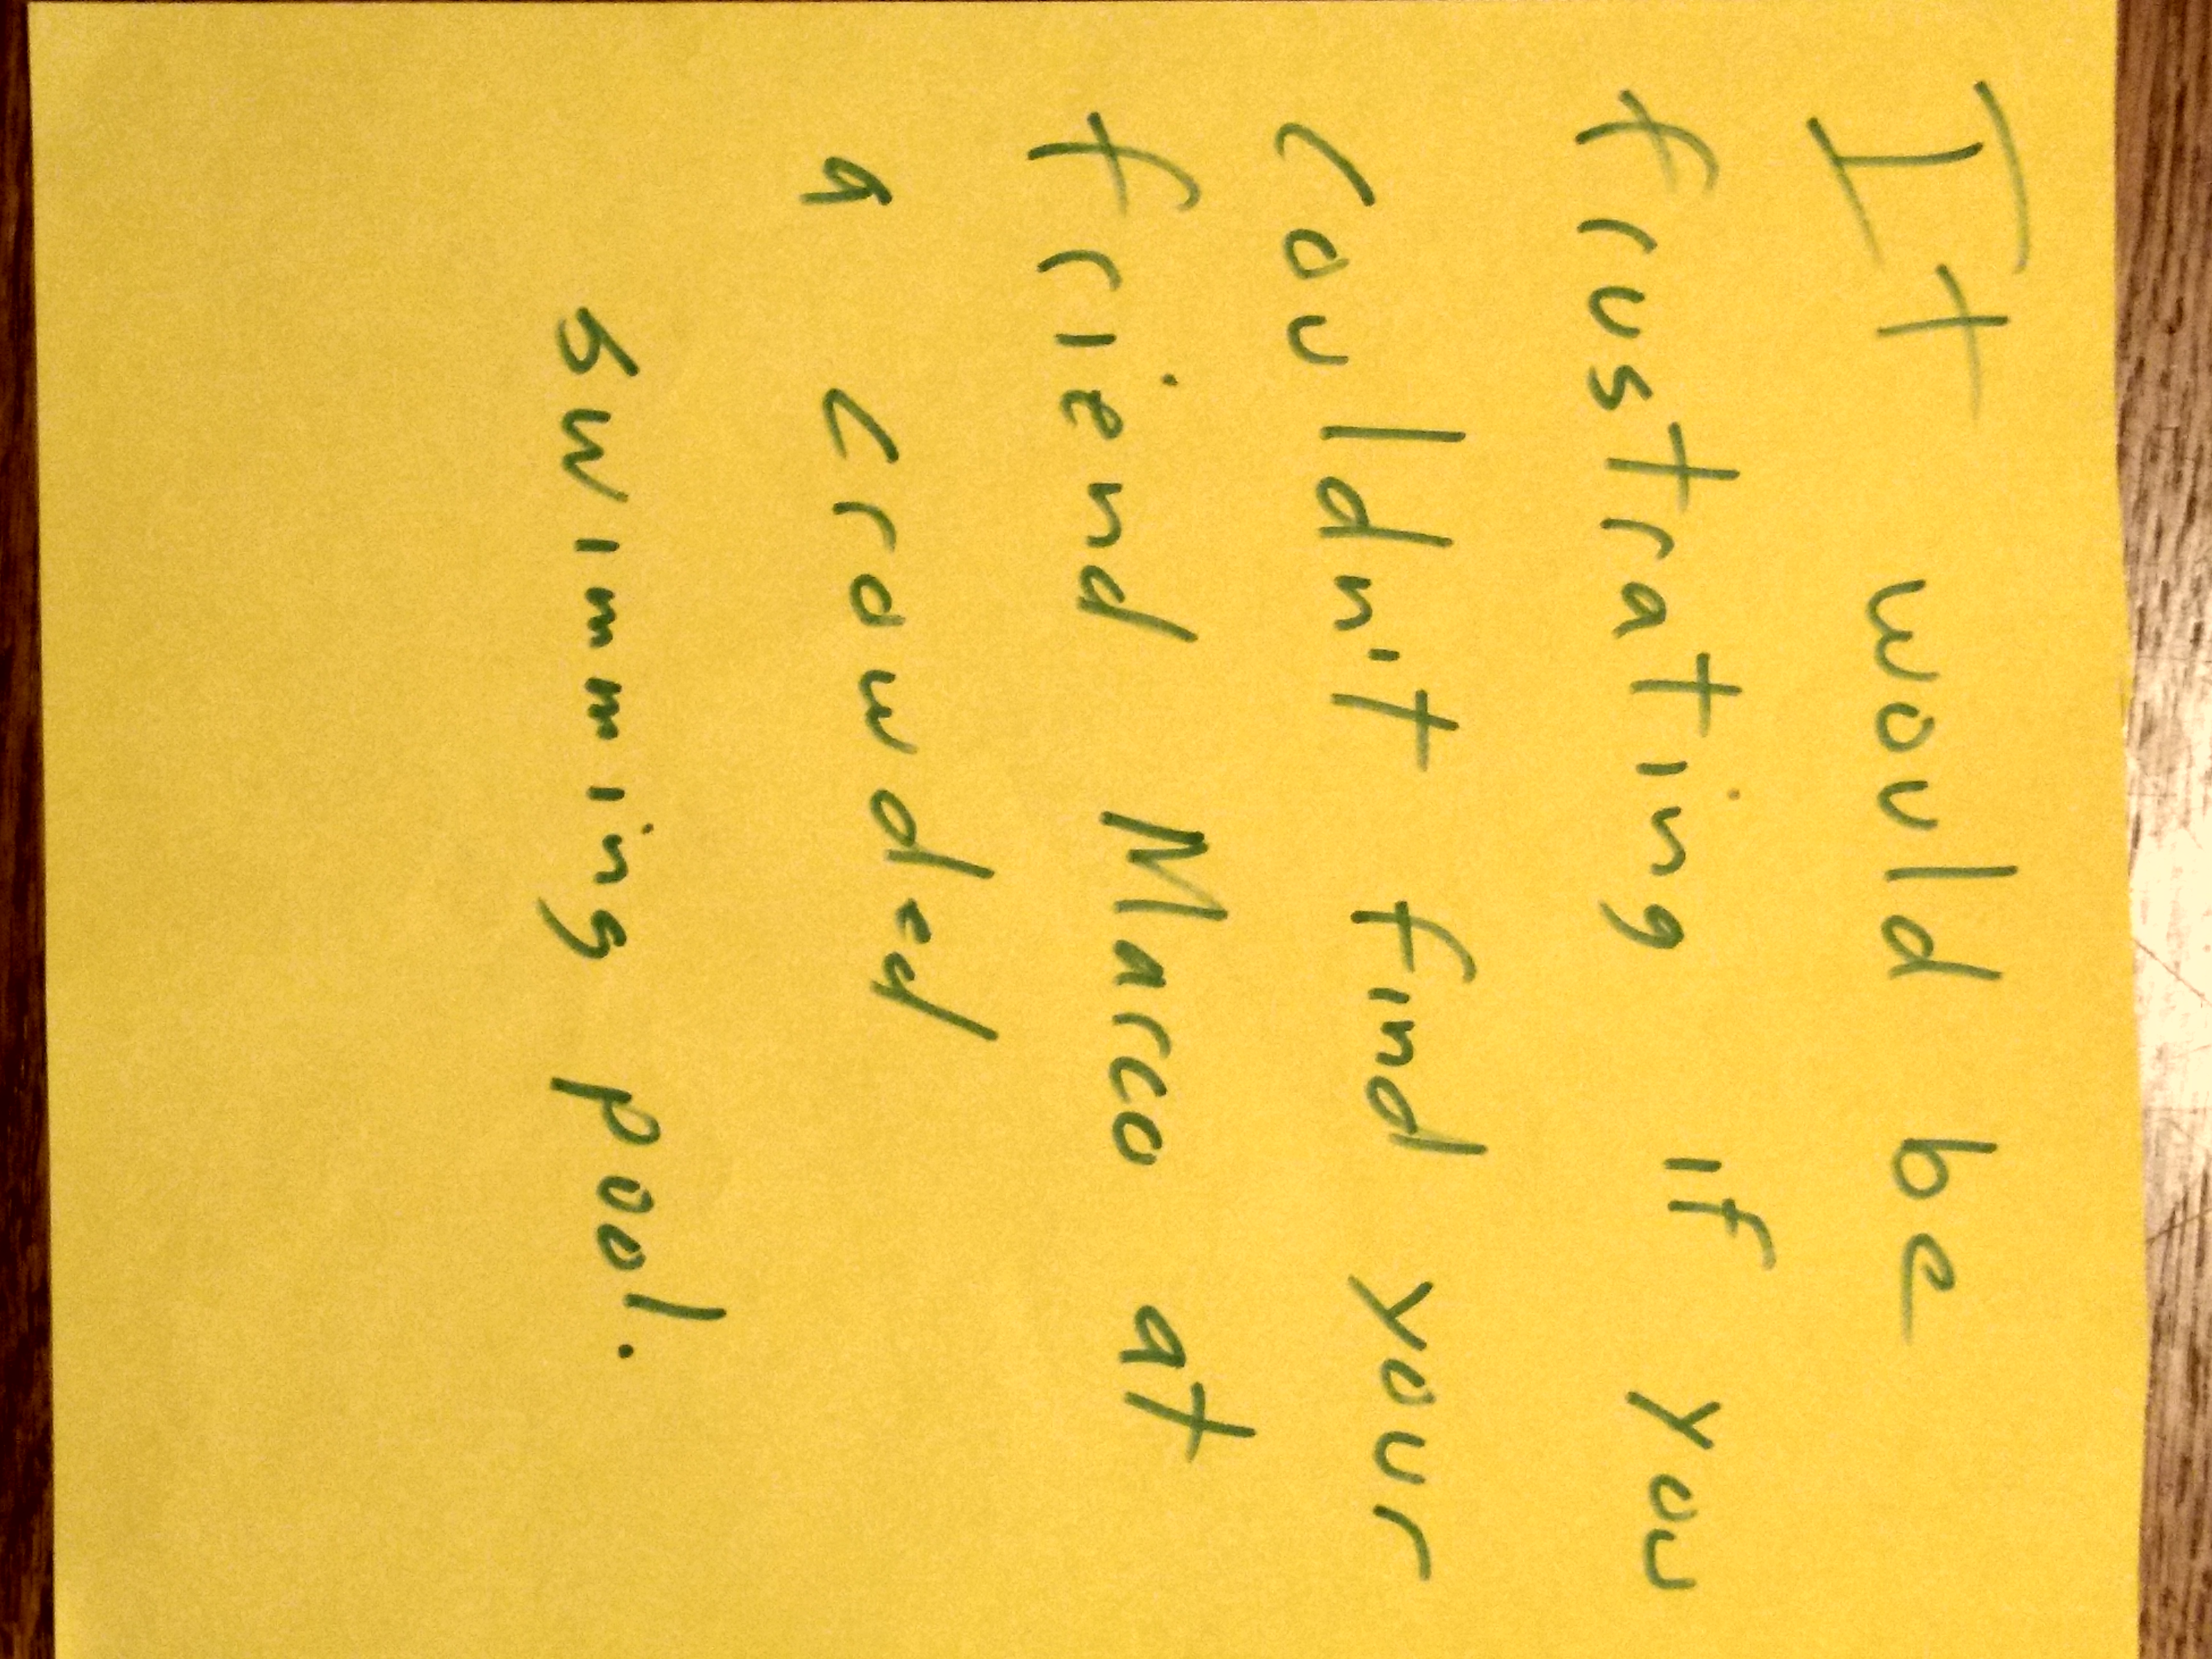 It would be
frustrating if you
couldn't find your
friend Marco at
a crowded
swimming pool.